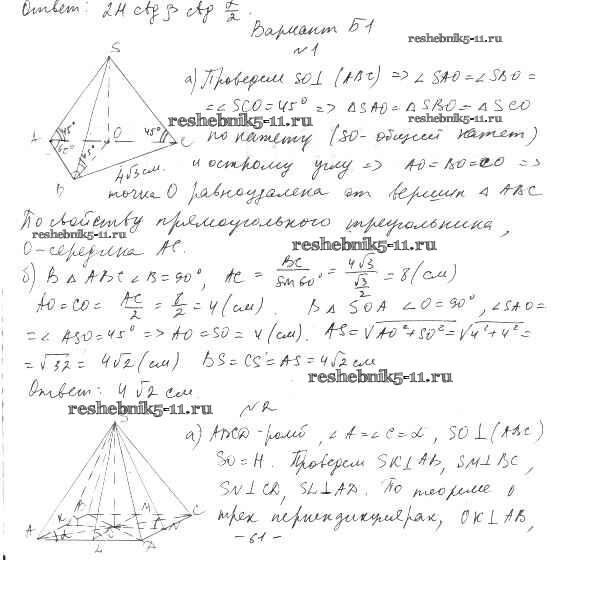 Ответ: 2H ctg β ctg α/2.
Вариант Б1
reshebnik5-11.ru
№1
а) Проведем SO⊥(ABC) => ∠SAO=∠SBO=
=∠SCO=45° => △SAO=△SBO=△SCO
reshebnik5-11.ru
по катету (SO-общий катет)
и острому углу => AO=BO=CO =>
точка O равноудалена от вершин △ABC
По свойству прямоугольного треугольника,
reshebnik5-11.ru
reshebnik5-11.ru
O-середина AC.
б) В △ABC ∠B=90°, AC = BC/sin60° = 4√3/(√3/2) = 8 (см)
AO=CO= AC/2 = 8/2 = 4 (см). В △SOA ∠O=90°, ∠SAO=
=∠ASO=45° => AO=SO=4 (см). AS=√AO²+SO²=√4²+4²=
=√32= 4√2 (см) BS=CS=AS=4√2 см
reshebnik5-11.ru
Ответ: 4√2 см.
reshebnik5-11.ru
№2
а) ABCD-ромб, ∠A=∠C=α, SO⊥(ABC)
SO=H. Проведем SK⊥AB, SM⊥BC,
SN⊥CD, SL⊥AD. По теореме о
трех перпендикулярах, OK⊥AB,
-61-
S
A
45°
O
45°
C
60°
45°
B
4√3 см.
S
B
M
C
K
O
N
A
α
L
D